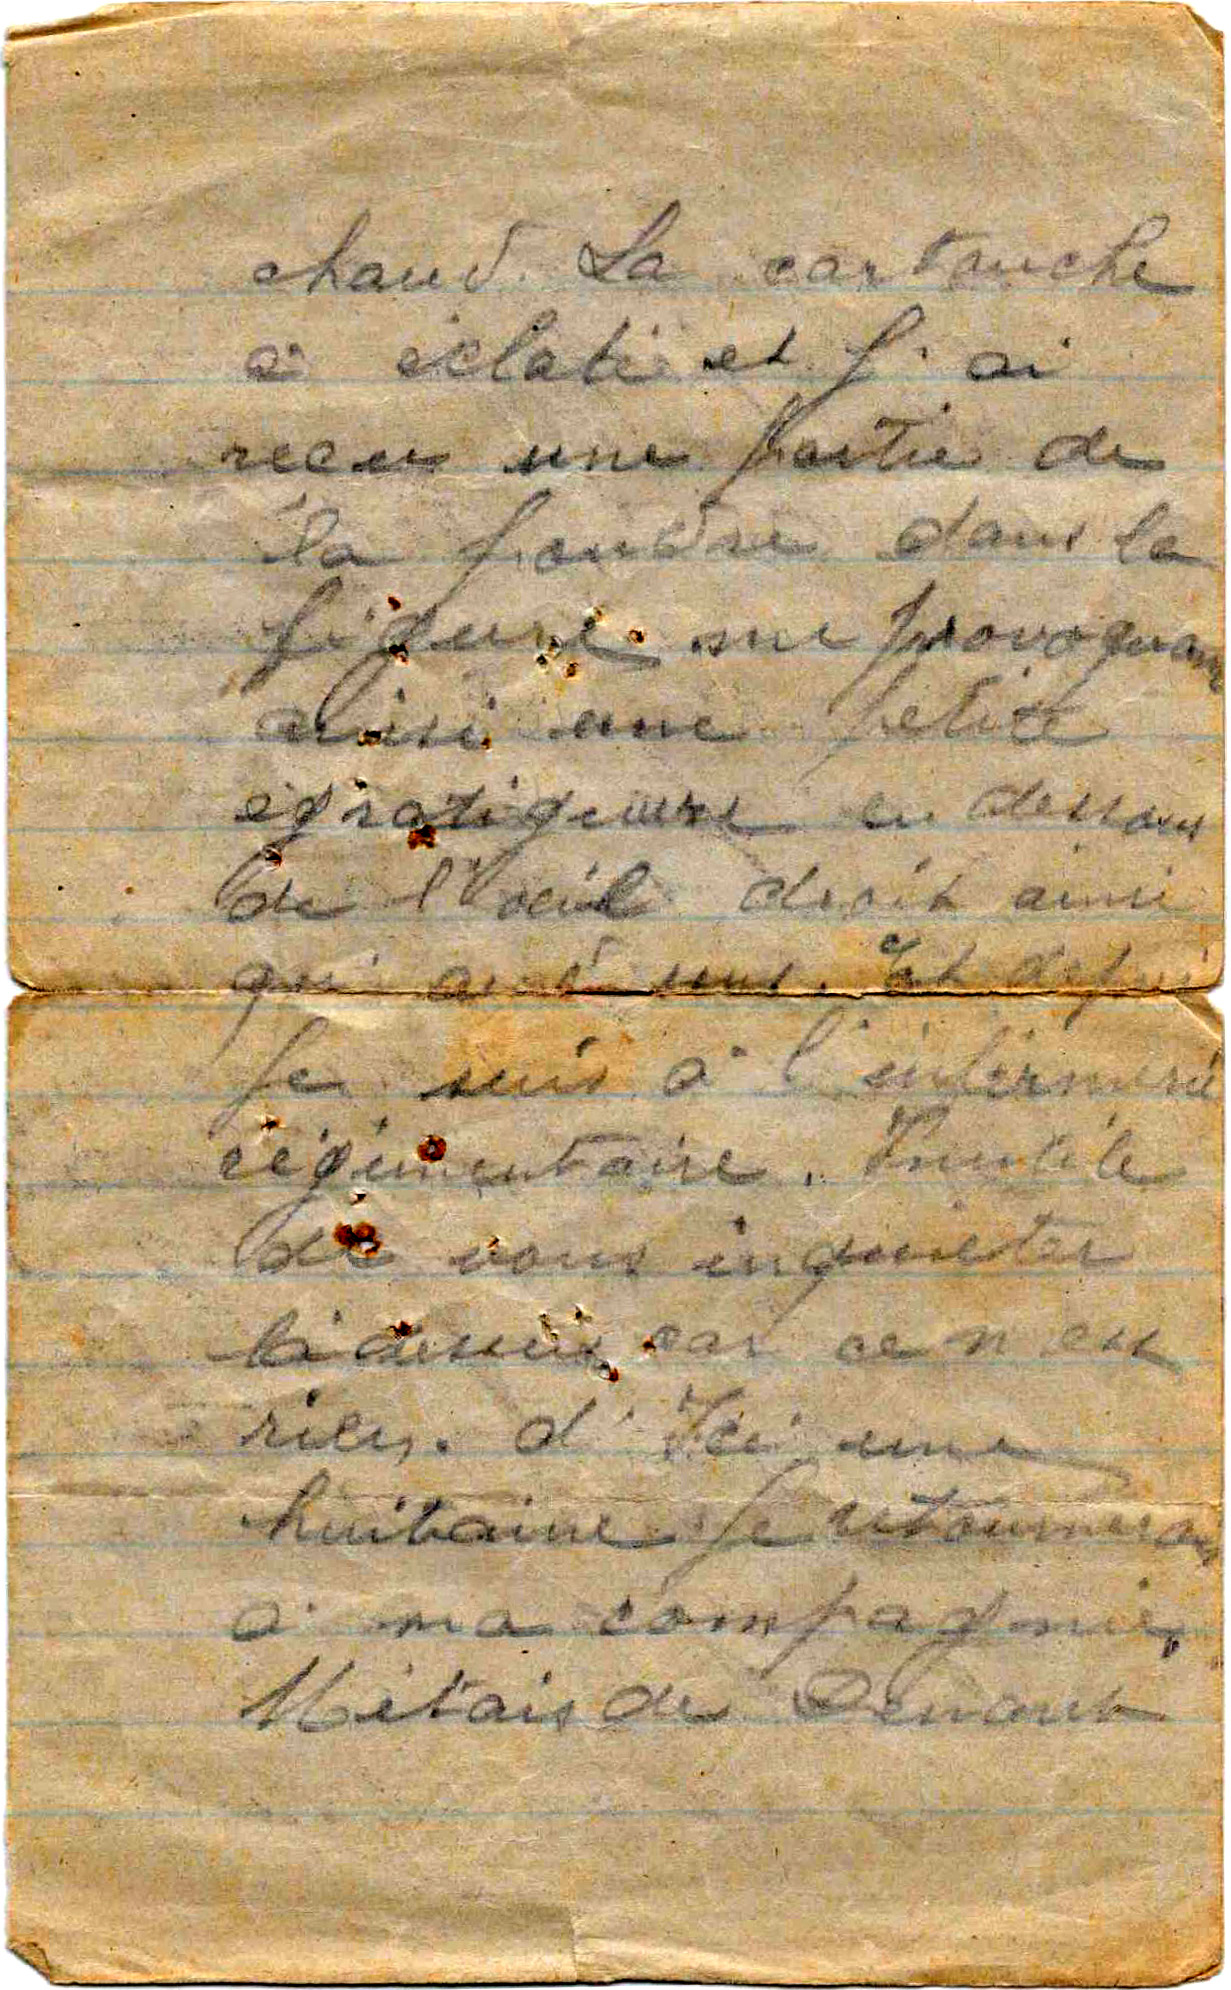 chaud. La cartouche
a éclaté et j'ai
recu une partie de
la poudre dans la
figure me provoquant
ainsi une petite
egratigneure en dessous
de l'oeuil droit ainsi
qu'au Et depui
je suis à l'infirmerie
régimentaire. Inutile
de vous inquieter
la dessus car ce n est
rien. d'Ici une
huitaine je retournerai
a ma compagnie,
Métais de